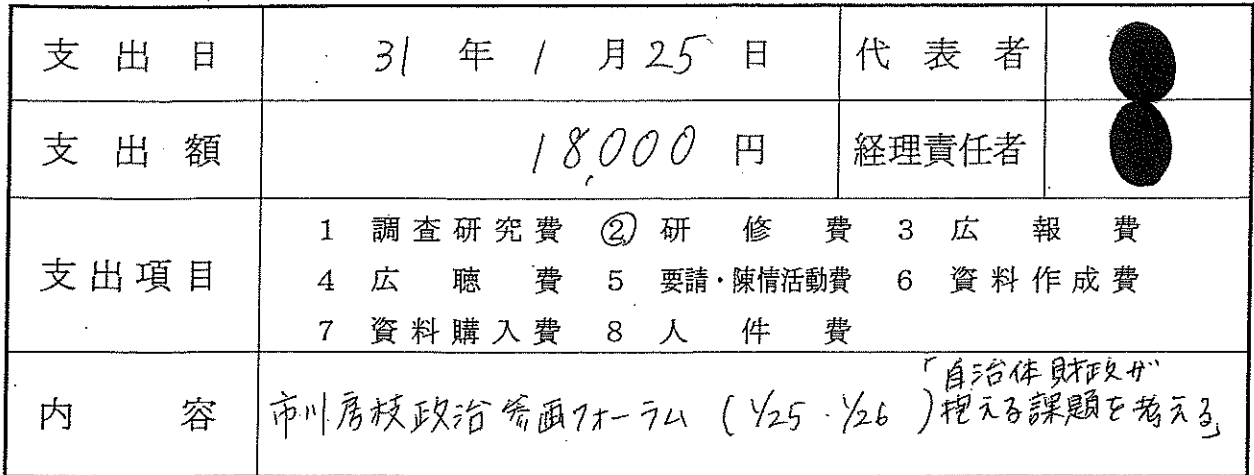 支出日 31年1月25日 代表者
支出額 18,000円 経理責任者
支出項目 1 調査研究費 ② 研修費 3 広報費
4 広聴費 5 要請・陳情活動費 6 資料作成費
7 資料購入費 8 人件費
内容 市川房枝政治参画フォーラム (1/25・1/26)「自治体財政が
抱える課題を考える」